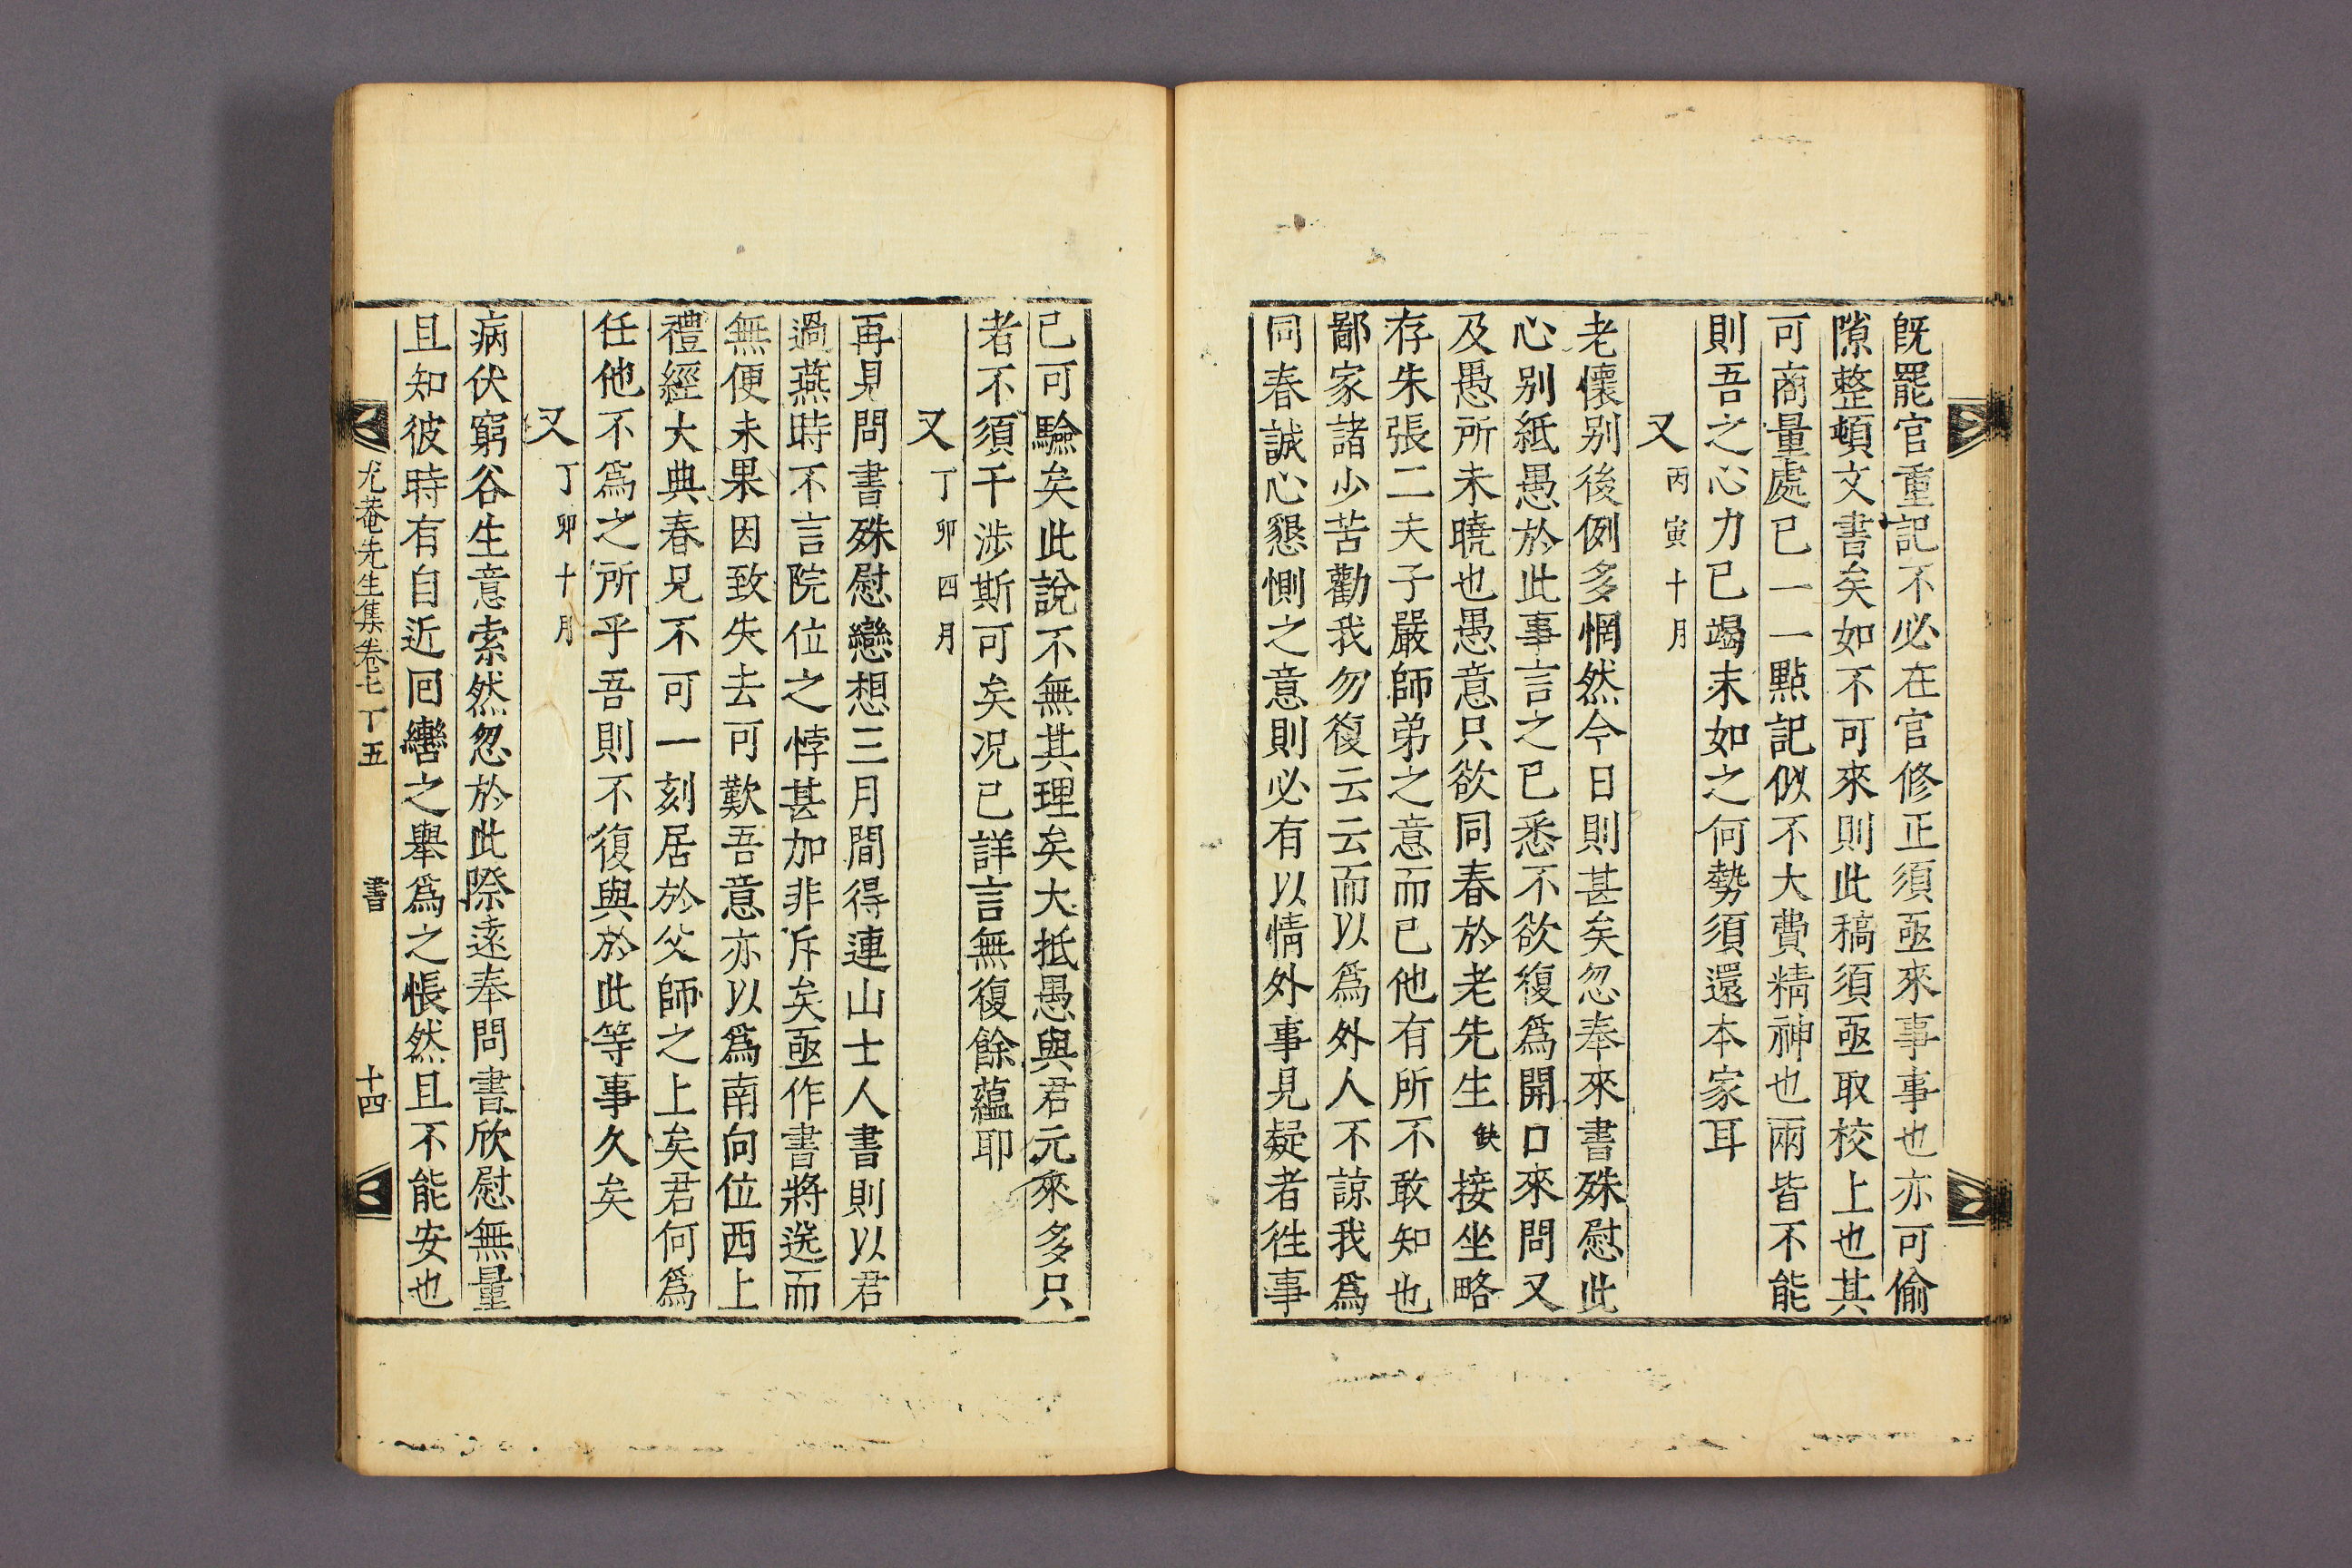 旣罷官重記不必在官修正須亟來事事也亦可偷
隙整頓文書矣如不可來則此稿須亟取校上也其
可商量處已一一點記似不大費精神也兩皆不能
則吾之心力已竭末如之何勢須還本家耳
又丙寅十月
老懷別後例多惘然今日則甚矣忽奉來書殊慰此
心別紙愚於此事言之已悉不欲復爲開口來問又
及愚所未曉也愚意只欲同春於老先生缺接坐略
存朱張二夫子嚴師弟之意而已他有所不敢知也
鄙家諸少苦勸我勿復云云而以爲外人不諒我爲
同春誠心懇惻之意則必有以情外事見疑者徃事
已可驗矣此說不無其理矣大抵愚與君元來多只
者不須干涉斯可矣况已詳言無復餘蘊耶
又丁卯四月
再見問書殊慰戀想三月間得連山士人書則以君
過燕時不言院位之悖甚加非斥矣亟作書將送而
無便未果因致失去可歎吾意亦以爲南向位西上
禮經大典春兄不可一刻居於父師之上矣君何爲
任他不爲之所乎吾則不復與於此等事久矣
又丁卯十月
病伏窮谷生意索然忽於此際遠奉問書欣慰無量
且知彼時有自近回轡之擧爲之悵然且不能安也
尤菴先生集卷七丁五 書 十四